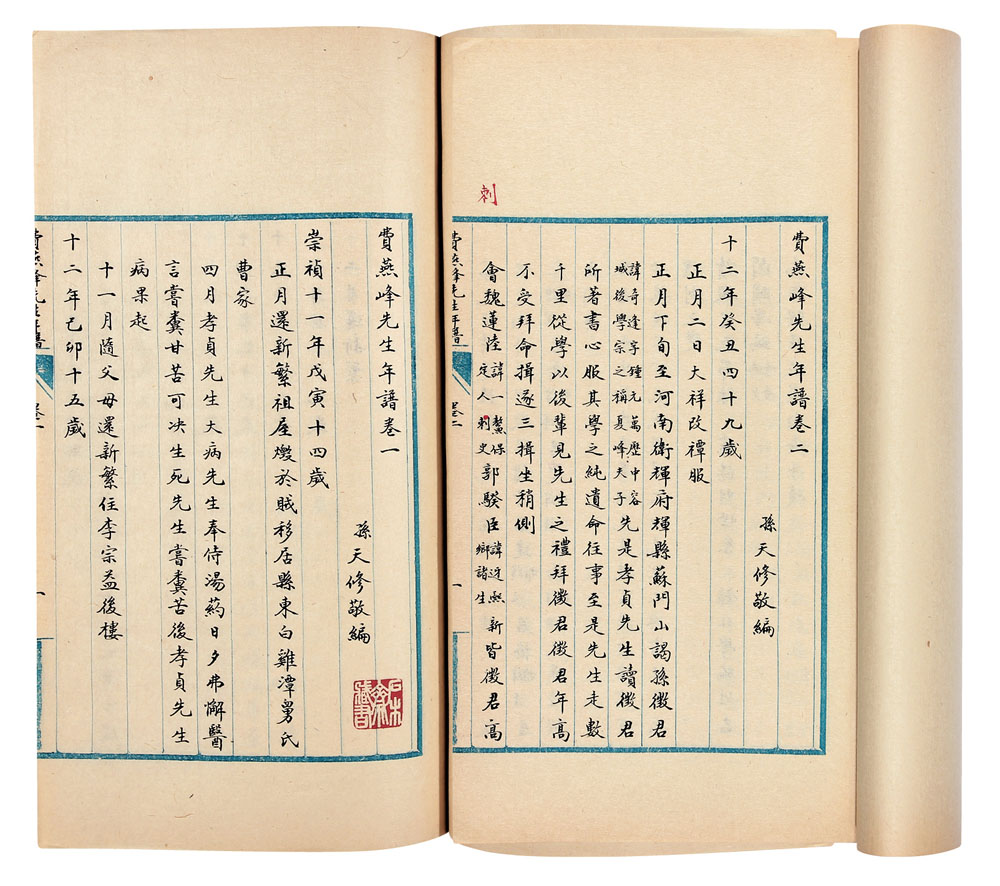 刺
費燕峰先生年譜卷二
孫天修敬編
十二年癸丑四十九歲
正月二日大祥改禫服
正月下旬至河南衛輝府輝縣蘇門山謁孫徵君
諱奇逢字鍾元萬歷中容城後學宗之稱夏峰夫子先是孝貞先生讀徵君
所著書心服其學之純遺命往事至是先生走數
千里從學以後輩見先生之禮拜徵君徵君年高
不受拜命揖遂三揖坐稍側
會魏蓮陸諱一鰲保定人刺史郭騤臣諱熙新鄉諸生皆徵君高
費燕峰先生年譜 卷二 一
費燕峰先生年譜卷一
孫天修敬編
石木齋藏書
崇禎十一年戊寅十四歲
正月還新繁祖屋燬於賊移居縣東白雞潭舅氏
曹家
四月孝貞先生大病先生奉侍湯葯日夕弗懈醫
言嘗糞甘苦可决生死先生嘗糞苦後孝貞先生
病果起
十一月隨父母還新繁住李宗益後樓
十二年己卯十五歲
費燕峰先生年譜 卷一 一